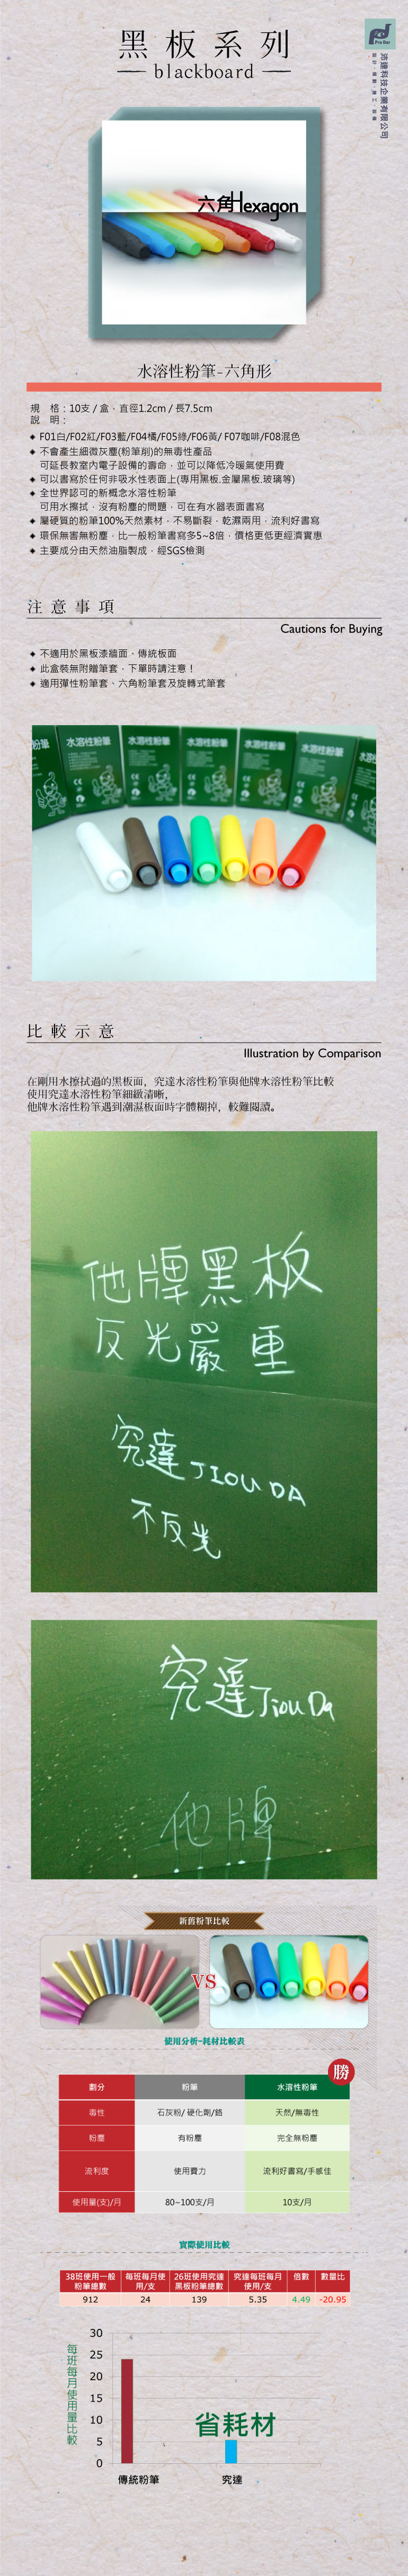 黑板系列
blackboard
Pro Dar
沛達科技企業有限公司
六角Hexagon
水溶性粉筆-六角形
規 格：10支 / 盒．直徑1.2cm / 長7.5cm
說 明：
F01白/F02紅/F03藍/F04橘/F05綠/F06黃/ F07咖啡/F08混色
不會產生細微灰塵(粉筆剤)的無毒性產品
可延長教室內電子設備的壽命，並可以降低冷暖氣使用費
可以書寫於任何非吸水性表面上(專用黑板.金屬黑板.玻璃等)
全世界認可的新概念水溶性粉筆
可用水擦拭，沒有粉塵的問題，可在有水器表面書寫
屬硬質的粉筆100%天然素材，不易斷裂．乾濕兩用．流利好書寫
環保無害無粉塵，比一般粉筆書寫多5~8倍，價格更低更經濟實惠
主要成分由天然油脂製成，經SGS檢測
注意事項
Cautions for Buying
不適用於黑板漆牆面、傳統板面
此盒裝無附贈筆套，下單時請注意！
適用彈性粉筆套、六角粉筆套及旋轉式筆套
水溶性粉筆
水溶性粉筆
水溶性粉筆
水溶性粉筆
水溶性粉筆
比較示意
Illustration by Comparison
在剛用水擦拭過的黑板面，究達水溶性粉筆與他牌水溶性粉筆比較
使用究達水溶性粉筆細緻清晰，
他牌水溶性粉筆遇到潮濕板面時字體糊掉，較難閱讀。
他牌黑板
反光嚴重
究達 JIOUDA
不反光
究達JiouDa
他牌
新舊粉筆比較
VS
使用分析-耗材比較表
勝
劃分 粉筆 水溶性粉筆
毒性 石灰粉/ 硬化劑/鉻 天然/無毒性
粉塵 有粉塵 完全無粉塵
流利度 使用費力 流利好書寫/手感佳
使用量(支)/月 80~100支/月 10支/月
實際使用比較
38班使用一般粉筆總數 每班每月使用/支 26班使用究達黑板粉筆總數 究達每班每月使用/支 倍數 數量比
912 24 139 5.35 4.49 -20.95
每班每月使用量比較
30
25
20
15
10
5
0
省耗材
傳統粉筆 究達